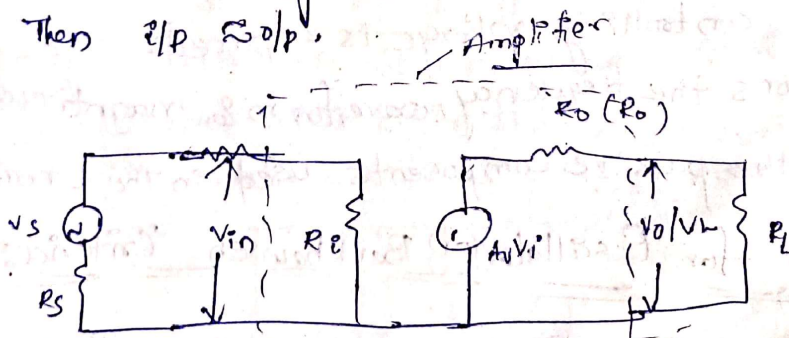 Then i/p ≈ o/p.
Amplifier
Ro (Ro)
Vs
Vin
Ri
AvVi
Vo/VL
RL
Rs